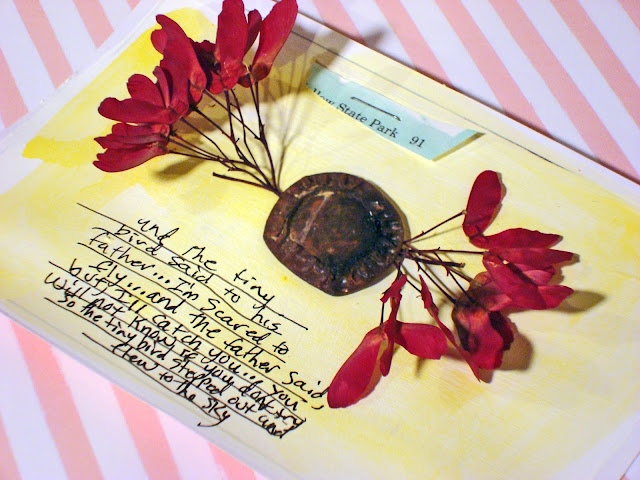 State Park 91
and the tiny
bird said to his
father...I'm scared to
fly...and the father said,
but I'll catch you...you
will not know if you don't try
so the tiny bird stepped out and
flew to the sky